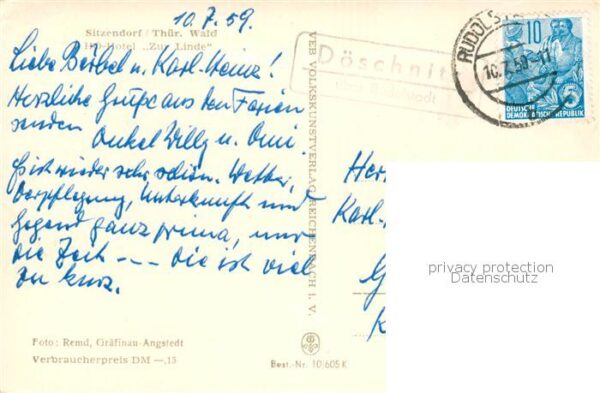 10.7.59.
Sitzendorf / Thür. Wald
HO-Hotel „Zur Linde"
Liebe Bärbel u. Karl-Heinz!
Herzliche Grüße aus den Ferien
senden Onkel Willy u. Omi.
Es ist wieder sehr schön. Wetter,
Verpflegung, Unterkunft und
Gegend ganz prima, nur
die Zeit --- die ist viel
zu kurz.
Foto: Remd, Gräfinau-Angstedt
Verbraucherpreis DM —.15
VEB VOLKSKUNSTVERLAG REICHENBACH I. V.
Best.-Nr. 10/605 K
Döschnitz
RUDOLST
10.7.59
10
DEUTSCHE
DEMOKRATISCHE REPUBLIK
5
Her
Karl-
G
K
privacy protection
Datenschutz